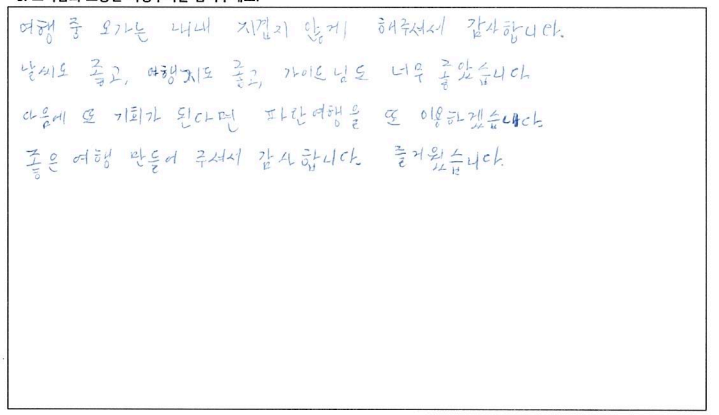 여행 중 오가는 내내 지겹지 않게 해주셔서 감사합니다.
날씨도 좋고, 여행지도 좋고, 가이드님도 너무 좋았습니다
다음에 또 기회가 된다면 파란여행을 또 이용하겠습니다.
좋은 여행 만들어 주셔서 감사합니다. 즐거웠습니다.